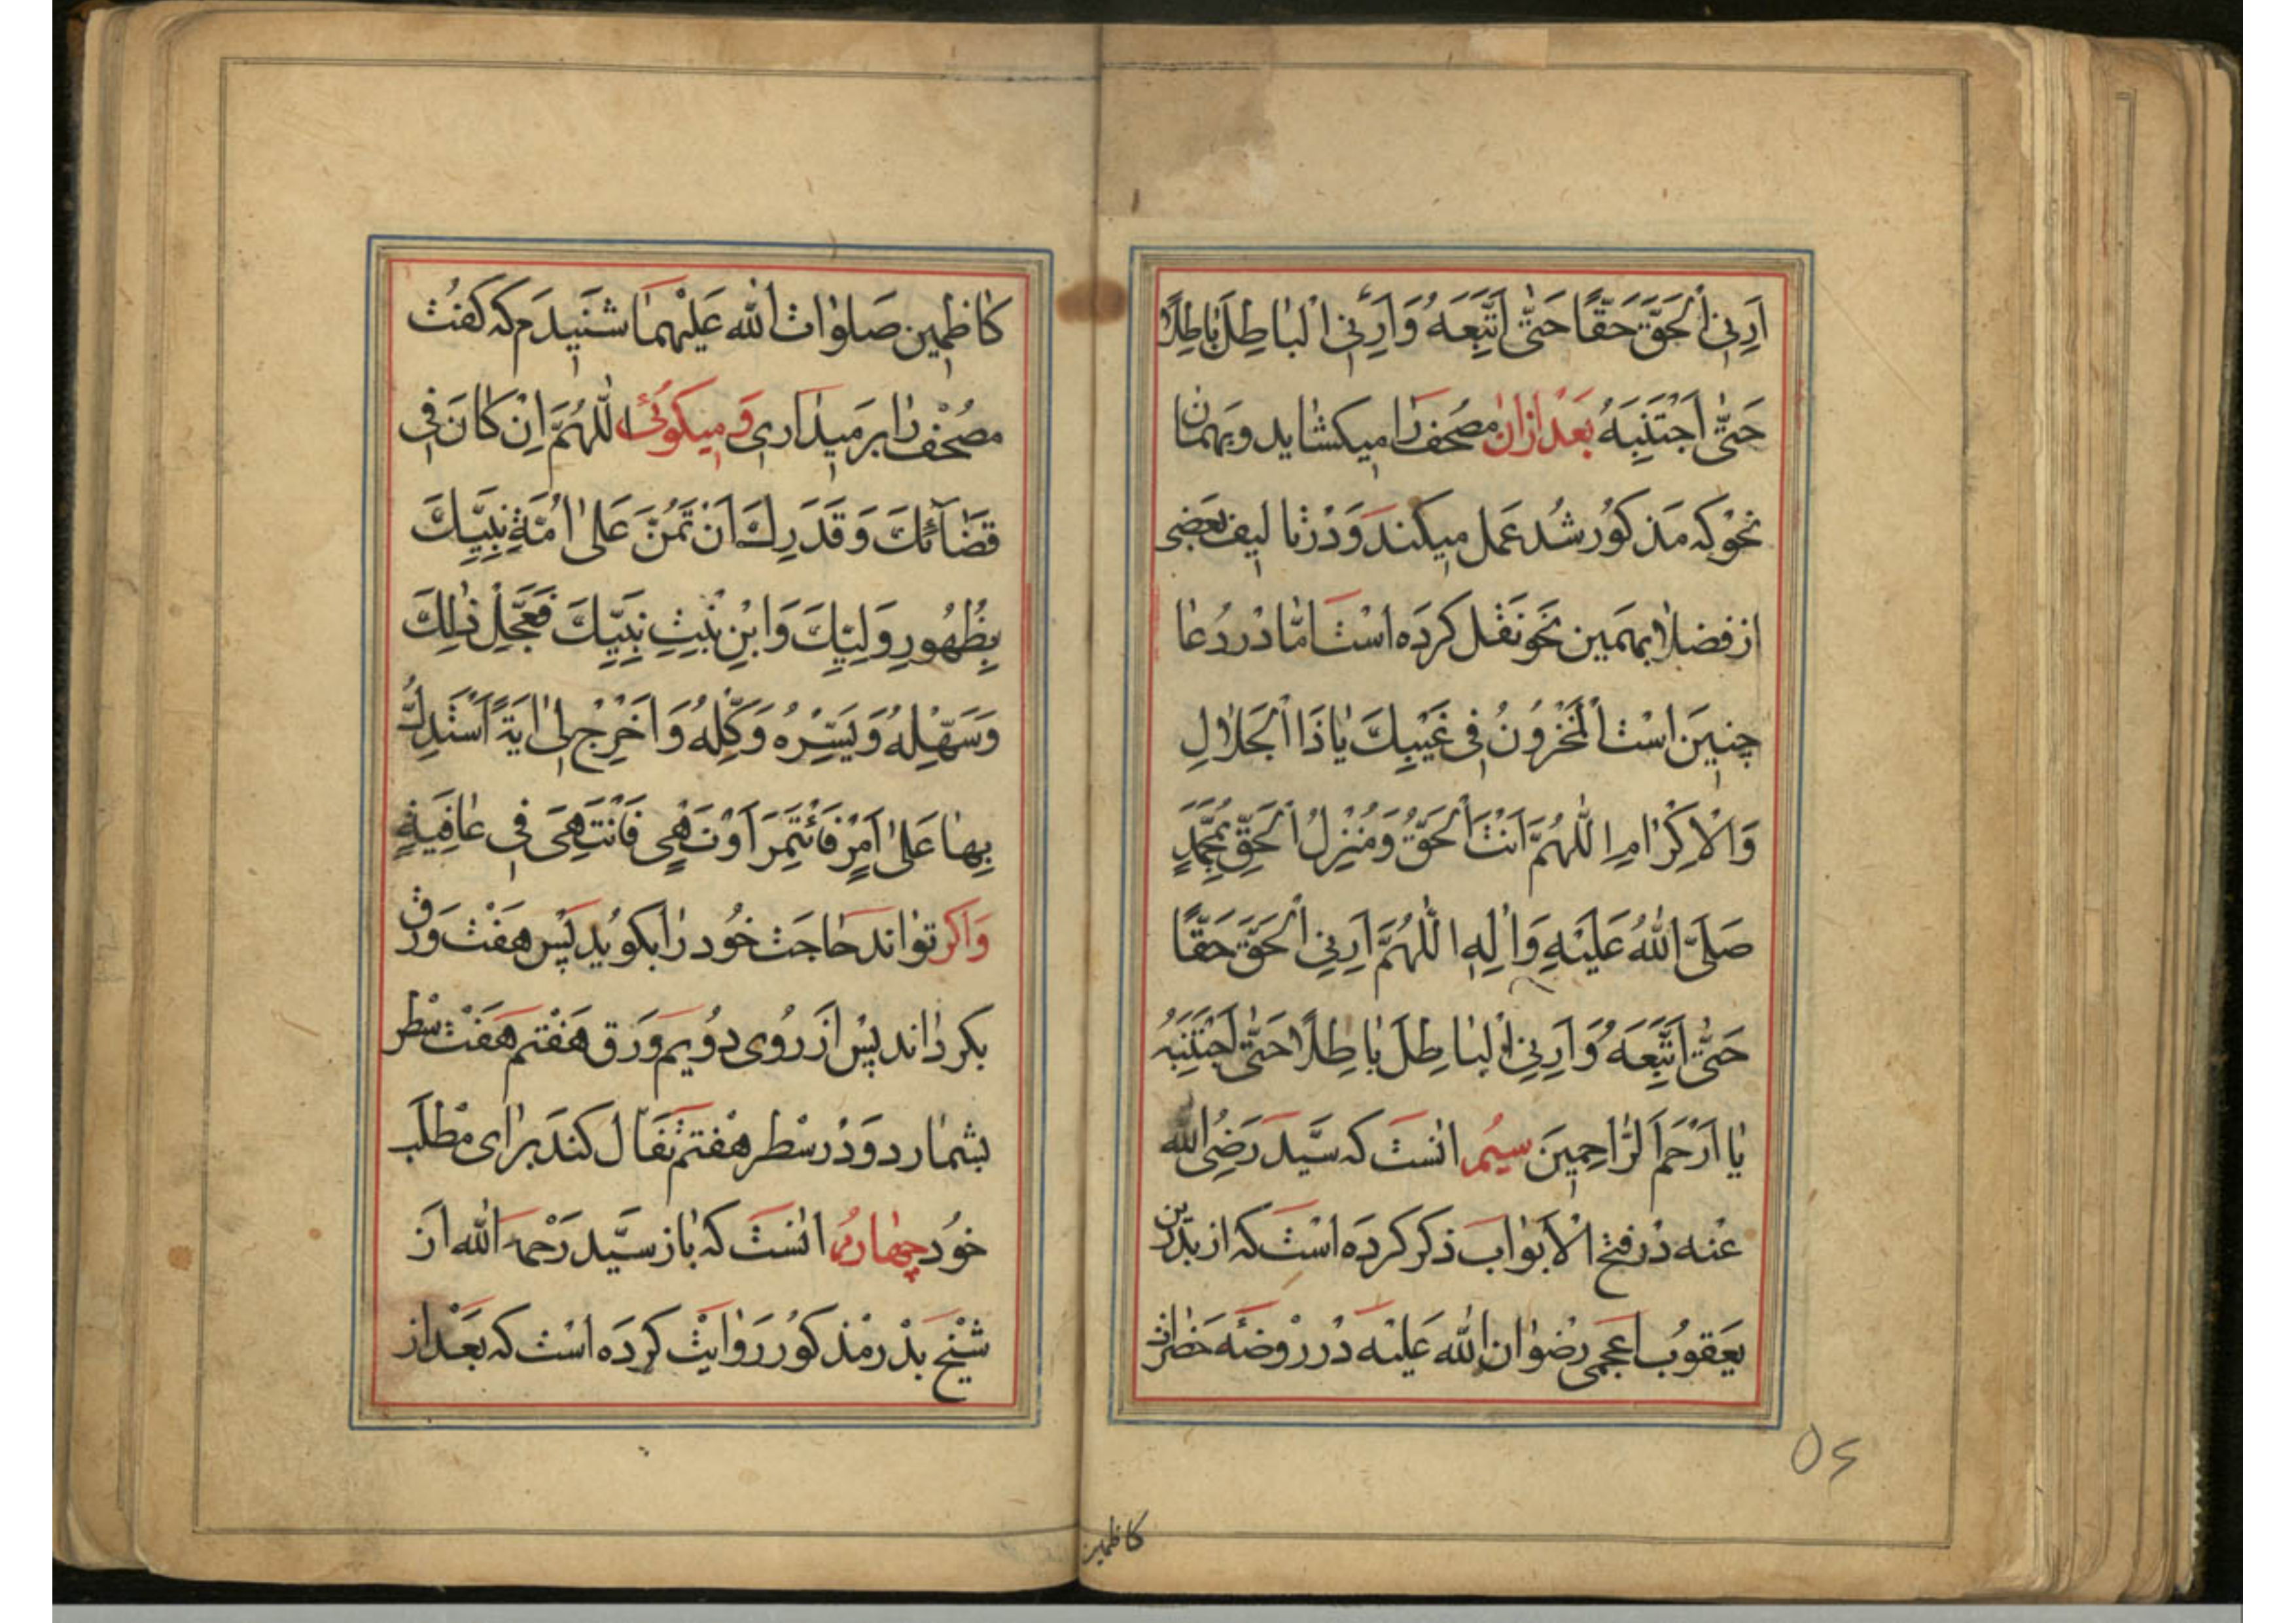 اَرِنِی الْحَقَّ حَقًّا حَتّٰی اَتَّبِعَهُ وَ اَرِنِی الْبٰاطِلَ بٰاطِلًا
حَتّٰی اَجْتَنِبَهُ بَعْدَ ازان مصحف رٰا میکشٰاید و بهمان
نحو که مَذکوُر شُد عَمل میکند وَ دَر تٰالیف بعَضی
از فضلٰا بهمین نَحو نَقل کرَده اسْت اَمّا دَر دُعٰا
چنینَ اسْت اَلْمَخْزُونُ فی غَیْبِكَ یٰا ذَا الْجَلٰالِ
وَ الْاِکْرٰامِ اللّٰهُمَّ اَنْتَ الْحَقُّ وَ مُنْزِلُ الْحَقِّ بِمُحَمَّدٍ
صَلَّی اللّٰهُ عَلَیْهِ وَ اٰلِهِ اللّٰهُمَّ اَرِنِی الْحَقَّ حَقًّا
حَتّٰی اَتَّبِعَهُ وَ اَرِنِی الْبٰاطِلَ بٰاطِلًا حَتّٰی اَجْتَنِبَهُ
یٰا اَرْحَمَ الرّٰاحِمینَ سیُم انست که سَیّد رَضِیَ اللّٰه
عَنْه دَر فتح الْاَبوٰاب ذکر کرَده اسْت که از بدر بن
یَعقوُب اعَجمی رضوٰان اللّٰه عَلیْه دَر رَوْضَه حَضرٰات
کاظمین
۵۶
کٰاظمین صَلوٰات اللّٰه عَلَیْهِمٰا شَنیدَم که کفت
مصُحْف رٰا بر مَیدٰاری وَ میکوُئی اللّٰهُمَّ اِنْ کٰانَ فی
قَضٰآئِكَ وَ قَدَرِكَ اَنْ تَمُنَّ عَلیٰ اُمَّةِ نَبِیِّكَ
بِظُهُورِ وَلِیِّكَ وَ ابْنِ بِنْتِ نَبِیِّكَ فَعَجِّلْ ذٰلِكَ
وَ سَهِّلْهُ وَ یَسِّرْهُ وَ کَمِّلْهُ وَ اَخْرِجْ لی اٰیَةً اَسْتَدِلُّ
بِهٰا عَلیٰ اَمْرٍ فَاَئْتَمِرَ اَوْ نَهْیٍ فَاَنْتَهِیَ فی عٰافِیَةٍ
وَ اکر توٰاند حٰاجَت خوُد رٰا بکوید پَس هَفْت وَرَق
بکردٰاند پس اَز روُی دوُیم وَرَق هَفتم هَفت سَطْر
بشمٰارد وَ دَر سَطْر هفتم تفَأّل کند بَرٰای مَطْلَب
خوُد چهٰارُم انست که بٰاز سَیّد رَحْمَه اللّٰه از
شیْخ بَدْر مذکوُر رَوٰایَت کرَده اسْت که بَعْد از